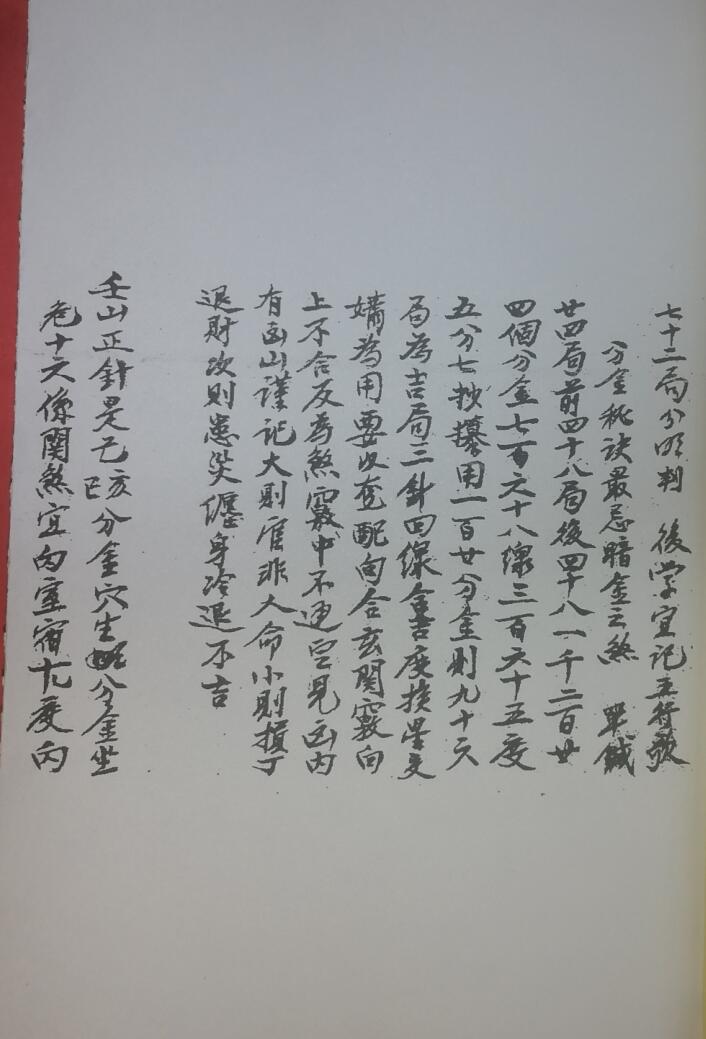 七十二局分明判 後学宜記五行歌
分金秘诀最忌暗金之煞 單鍼
廿四局前四十八局後四十八一千二百廿
四個分金七百六十八線三百六十五度
五分七抄擇用一百廿分金則九十六
局為吉局三針四線合吉度挨星交
媾為用要次套配向合玄関竅向
上不合反為煞竅中不通豈見函内
有凶山謹记大則官非人命小則損丁
退財次則患災纏身冷退不吉
壬山正針是乙亥分金穴坐分金坐
危十六係関煞宜向室宿九度内